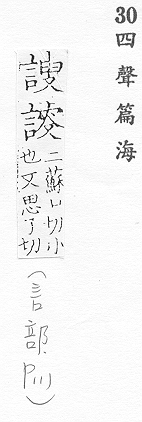 30四聲篇海
謏𧨯
二蘇口切小
也又思了切
(言部.P111)